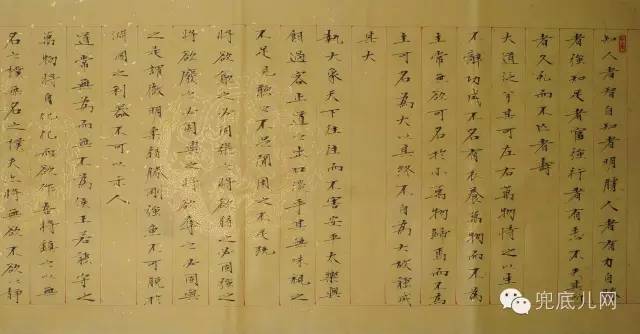 知人者智自知者明勝人者有力自勝
者強知足者富強行者有志不失其所
者久死而不亡者壽
大道泛兮其可左右萬物恃之以生而
不辭功成不名有衣養萬物而不為
主常無欲可名於小萬物歸焉而不為
主可名為大以其終不自為大故能成
其大
執大象天下往往而不害安平太樂與
餌過客止道之出口淡乎其無味視之
不足見聽之不足聞用之不足既
將欲歙之必固張之將欲弱之必固強之
將欲廢之必固興之將欲奪之必固與
之是謂微明柔弱勝剛強魚不可脫於
淵國之利器不可以示人
道常無為而無不為侯王若能守之
萬物將自化化而欲作吾將鎮之以無
名之樸無名之樸夫亦將無欲不欲以靜
兜底儿网